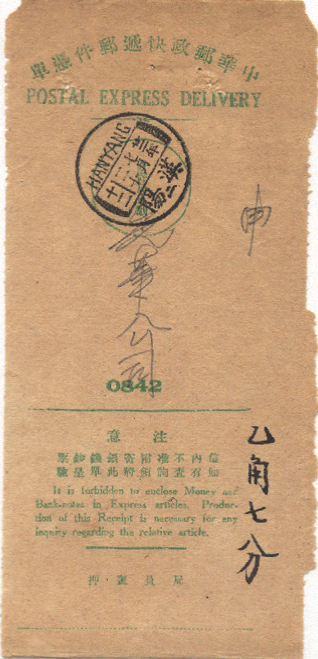 中華郵政快遞郵件憑單
POSTAL EXPRESS DELIVERY
HANYANG
漢陽
申
華公司
0842
乙角七分
注意
信內不准附寄銀錢鈔票
如有查詢須將此單呈驗
It is forbidden to enclose Money and
Bank-notes in Express articles. Produc-
tion of this Receipt is necessary for any
inquiry regarding the relative article.
局員簽押